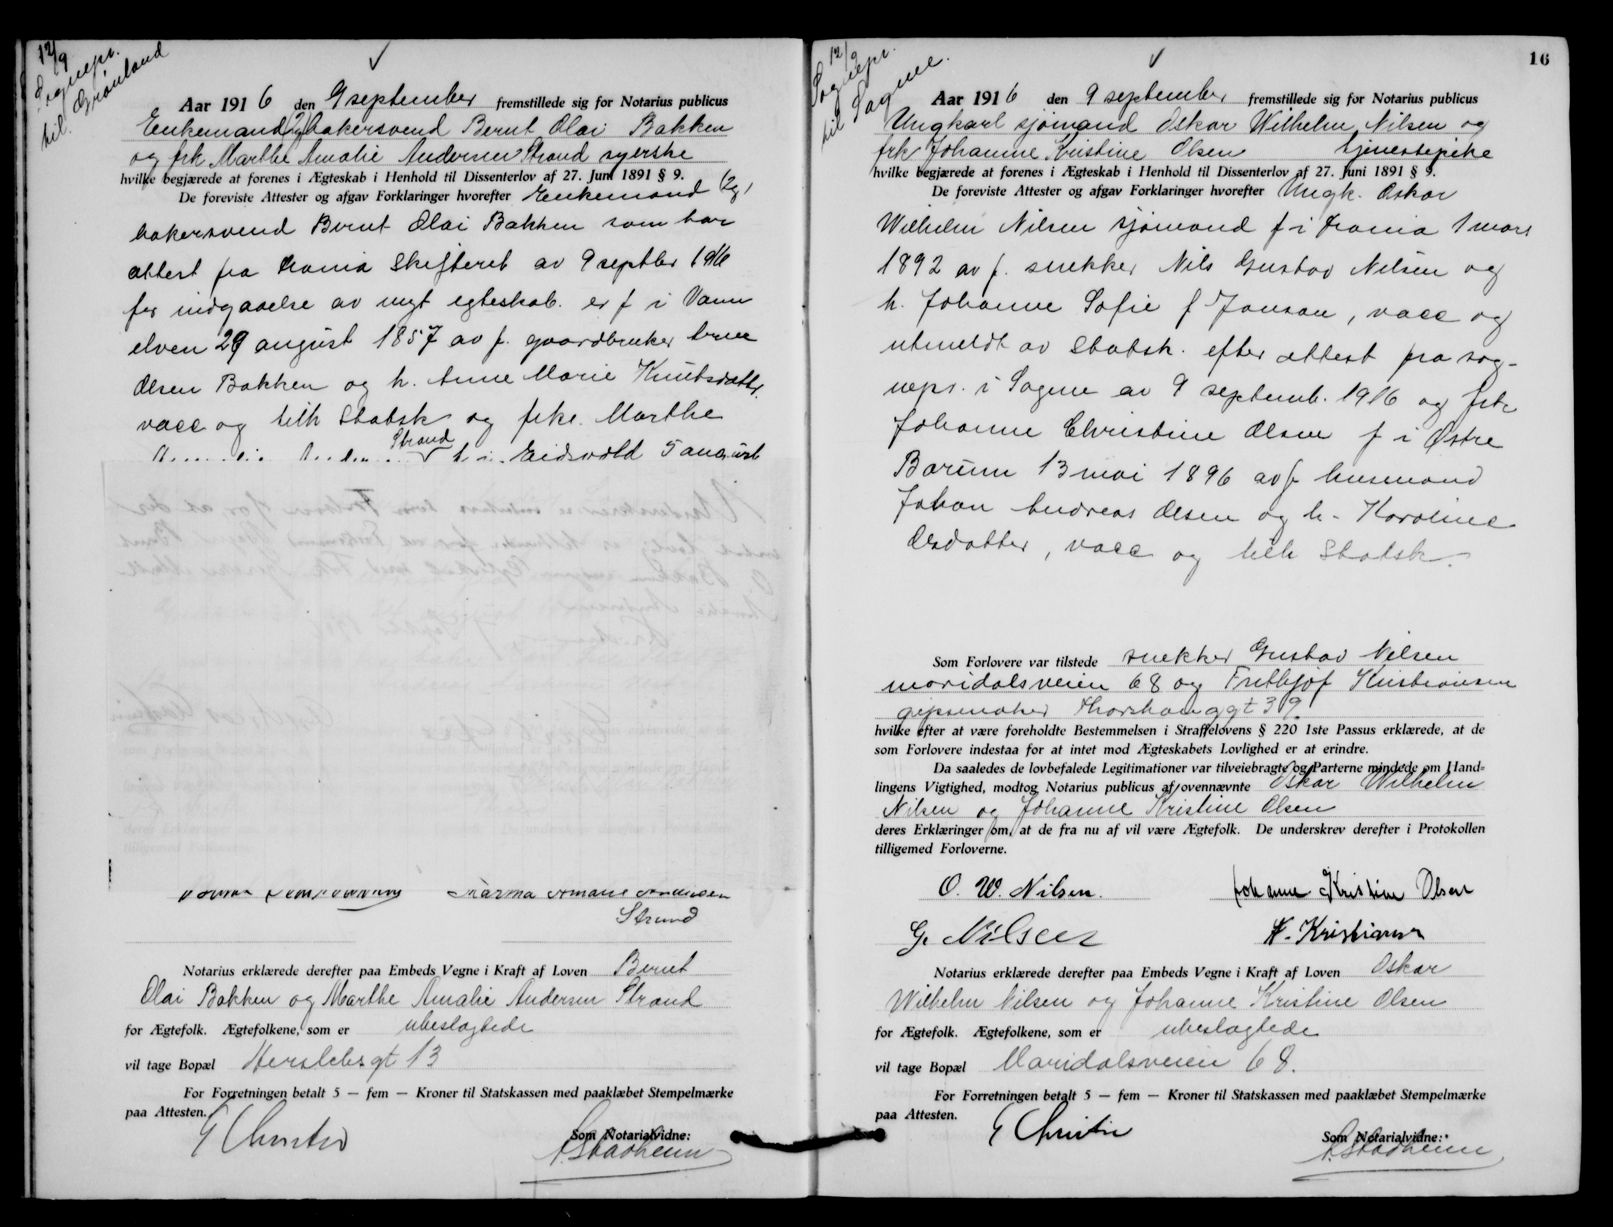 12/9
Sognepr.
til Grønland
Aar 1916 den 9 september fremstillede sig for Notarius publicus
Enkemand bakersvend Bernt Olai Bakken
og frk Marthe Amalie Andersen Strand syerske
hvilke begjærede at forenes i Ægteskab i Henhold til Dissenterlov af 27. Juni 1891 § 9.
De foreviste Attester og afgav Forklaringer hvorefter Enkemand
bakersvend Bernt Olai Bakken som har
attest fra Krania Skifteret av 9 septbr 1916
for indgaaelse av nyt egteskab. er f i Vann
elven 29 august 1857 av f. gaardbruker
Olsen Bakken og h. Anne Marie Knutsdatter.
vacc og tilh Statsk og frk. Marthe
Strand
Eidsvold 5 august
Marthe Amalie Andersen
Strand
Notarius erklærede derefter paa Embeds Vegne i Kraft af Loven Bernt
Olai Bakken og Marthe Amalie Andersen Strand
for Ægtefolk. Ægtefolkene, som er ubeslægtede
vil tage Bopæl Herslebsgt 13
For Forretningen betalt 5 — fem — Kroner til Statskassen med paaklæbet Stempelmærke
paa Attesten.
G Christie
Som Notarialvidne:
16
12/9
Sognepr.
til Sagene.
Aar 1916 den 9 september fremstillede sig for Notarius publicus
Ungkarl sjømand Oskar Wilhelm Nilsen og
frk Johanne Kristine Olsen tjenestepike
hvilke begjærede at forenes i Ægteskab i Henhold til Dissenterlov af 27. Juni 1891 § 9.
De foreviste Attester og afgav Forklaringer hvorefter Ungk. Oskar
Wilhelm Nilsen sjømand f i Krania 1 mars
1892 av f. snekker Nils Gustav Nilsen og
h. Johanne Sofie f Jonsen, vacc og
utmeldt av Statsk. efter attest fra sog-
nepr. i Sagene av 9 septemb. 1916 og frk
Johanne Christine Olsen f i Østre
Bærum 13 mai 1896 av f. husmand
Johan Andreas Olsen og h. Karoline
Olsdatter, vacc og tilh Statsk.
Som Forlovere var tilstede snekker Gustav Nilsen
maridalsveien 68 og Frithjof Kristiansen
gipsmaker Thorshauggt 39
hvilke efter at være foreholdte Bestemmelsen i Straffelovens § 220 1ste Passus erklærede, at de
som Forlovere indestaa for at intet mod Ægteskabets Lovlighed er at erindre.
Da saaledes de lovbefalede Legitimationer var tilveiebragte og Parterne mindede om Hand-
lingens Vigtighed, modtog Notarius publicus af ovennævnte Oskar Wilhelm
Nilsen og Johanne Kristine Olsen
deres Erklæringer om, at de fra nu af vil være Ægtefolk. De underskrev derefter i Protokollen
tilligemed Forloverne.
O. W. Nilsen. Johanne Kristine Olsen
G. Nilsen F. Kristiansen
Notarius erklærede derefter paa Embeds Vegne i Kraft af Loven Oskar
Wilhelm Nilsen og Johanne Kristine Olsen
for Ægtefolk. Ægtefolkene, som er ubeslægtede
vil tage Bopæl Maridalsveien 68.
For Forretningen betalt 5 — fem — Kroner til Statskassen med paaklæbet Stempelmærke
paa Attesten.
G Christie
Som Notarialvidne: